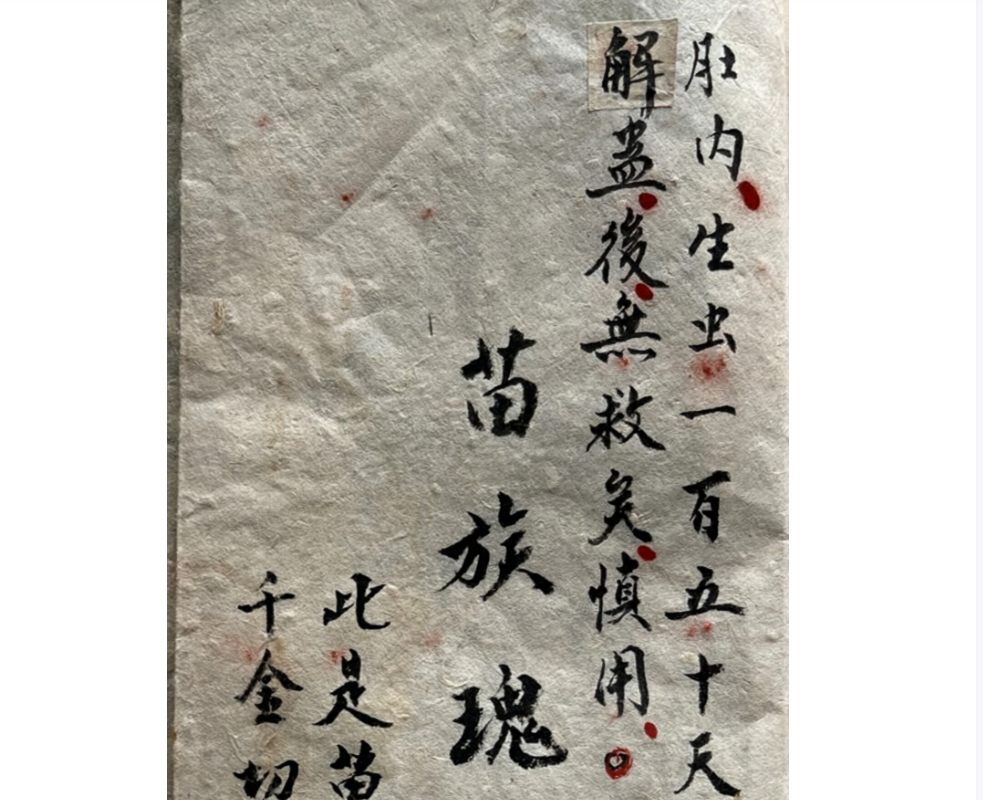 肚内生虫一百五十天
解蛊後無救矣慎用
苗族瑰
此是苗
千金切